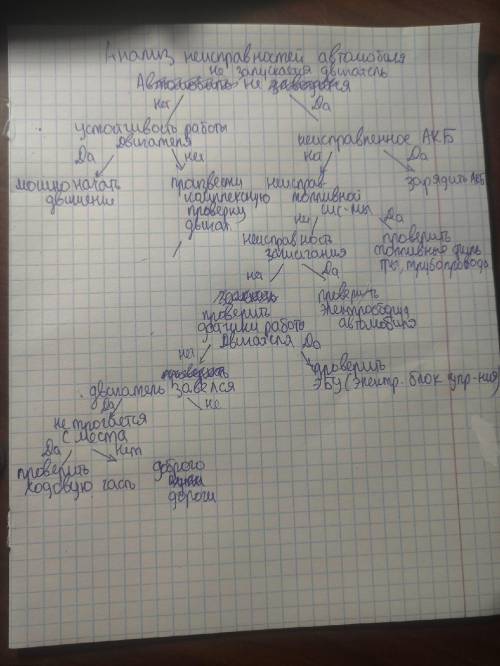 Анализ неисправностей автомобиля
не запускается двигатель
Автомобиль не заводится
Нет Да
устойчивость работы
двигателя
неисправленное АКБ
Да нет
На Да
можно начать
движение
произвести
комплексную
проверку
двигат.
неисправ-
топливной
сис-мы
зарядить АКБ
не Да
неисправность
зажигания
проверить
топливные филь
тры, трубопровода
на Да
проверить
датчики работы
двигателя
проверить
электрооборуд
автомобиля
нет Да
проверить
ЭБУ (электр. блок упр-ния)
двигатель завелся
Да не
не трогается
с места
Да Нет
проверить
ходовую часть
доброго
дороги